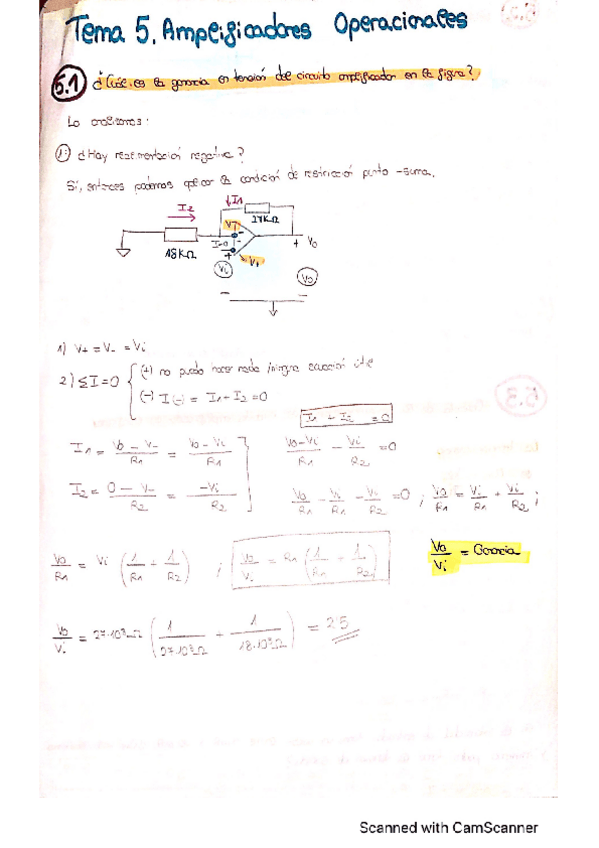 Tema 5. Amplificadores Operacionales
5.1 ¿Cuál es la ganancia en tensión del circuito amplificador en la figura?
Lo analizamos:
1º ¿Hay realimentación negativa?
Sí, entonces podemos aplicar la condición de restricción punto-suma.
I2
I1
27KΩ
18KΩ
V-
I=0
V+
+ Vo
Vi
Vo
1) V+ = V- = Vi
2) ΣI=0 { (+) no puedo hacer nada ninguna ecuación útil
(-) I(-) = I1+I2 = 0
I1 + I2 = 0
I1 = Vo - V- / R1 = Vo - Vi / R1
Vo-Vi / R1 - Vi / R2 = 0
I2 = 0 - V- / R2 = -Vi / R2
Vo / R1 - Vi / R1 - Vi / R2 = 0 ; Vo / R1 = Vi / R1 + Vi / R2 ;
Vo / R1 = Vi (1 / R1 + 1 / R2) ; Vo / Vi = R1 (1 / R1 + 1 / R2)
Vo / Vi = Ganancia
Vo / Vi = 27·10³Ω (1 / 27·10³Ω + 1 / 18·10³Ω) = 2'5
Scanned with CamScanner